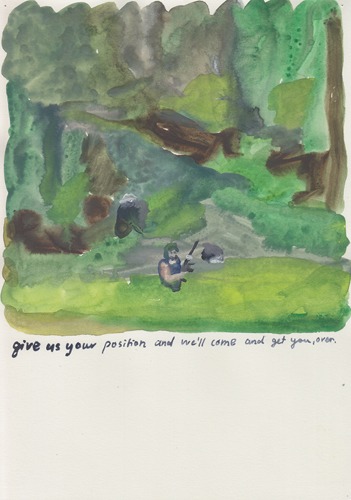 give us your position and we'll come and get you, over.